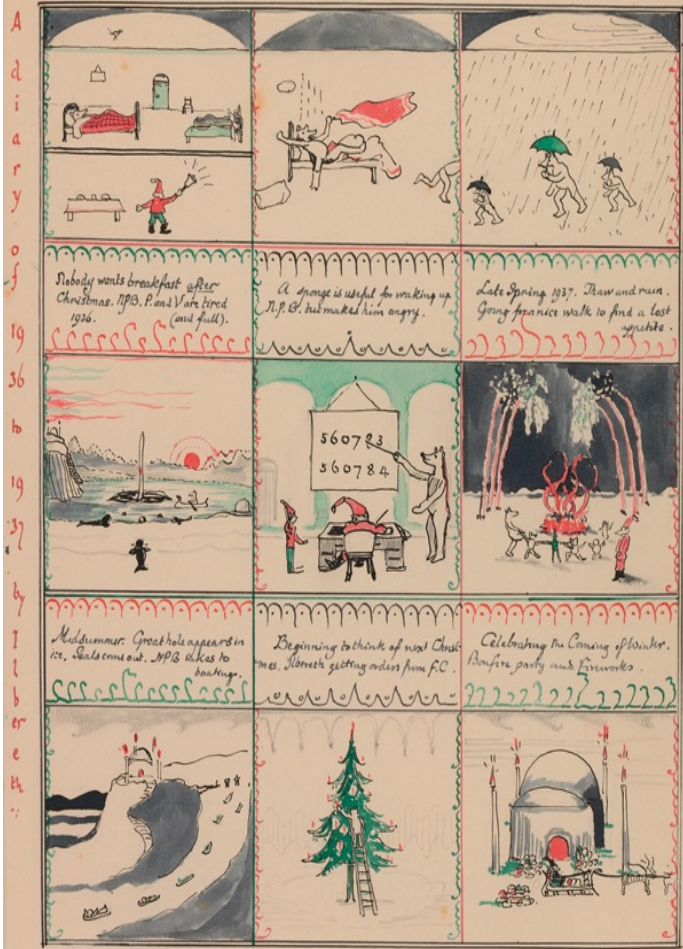 A diary of 1936 to 1937 by Ilbereth
Nobody wants breakfast after
Christmas. NPB. P. and V are tired
1926. (and full).
A sponge is useful for waking up
N.P.B. but makes him angry.
Late Spring 1937. Thaw and rain.
Going for a nice walk to find a lost
appetite.
560783
560784
Midsummer. Great hole appears in
ice. Seals come out. NPB takes to
boating.
Beginning to think of next Christ-
mas. Ilbereth getting orders from F.C
Celebrating the Coming of Winter.
Bonfire party and Fireworks.